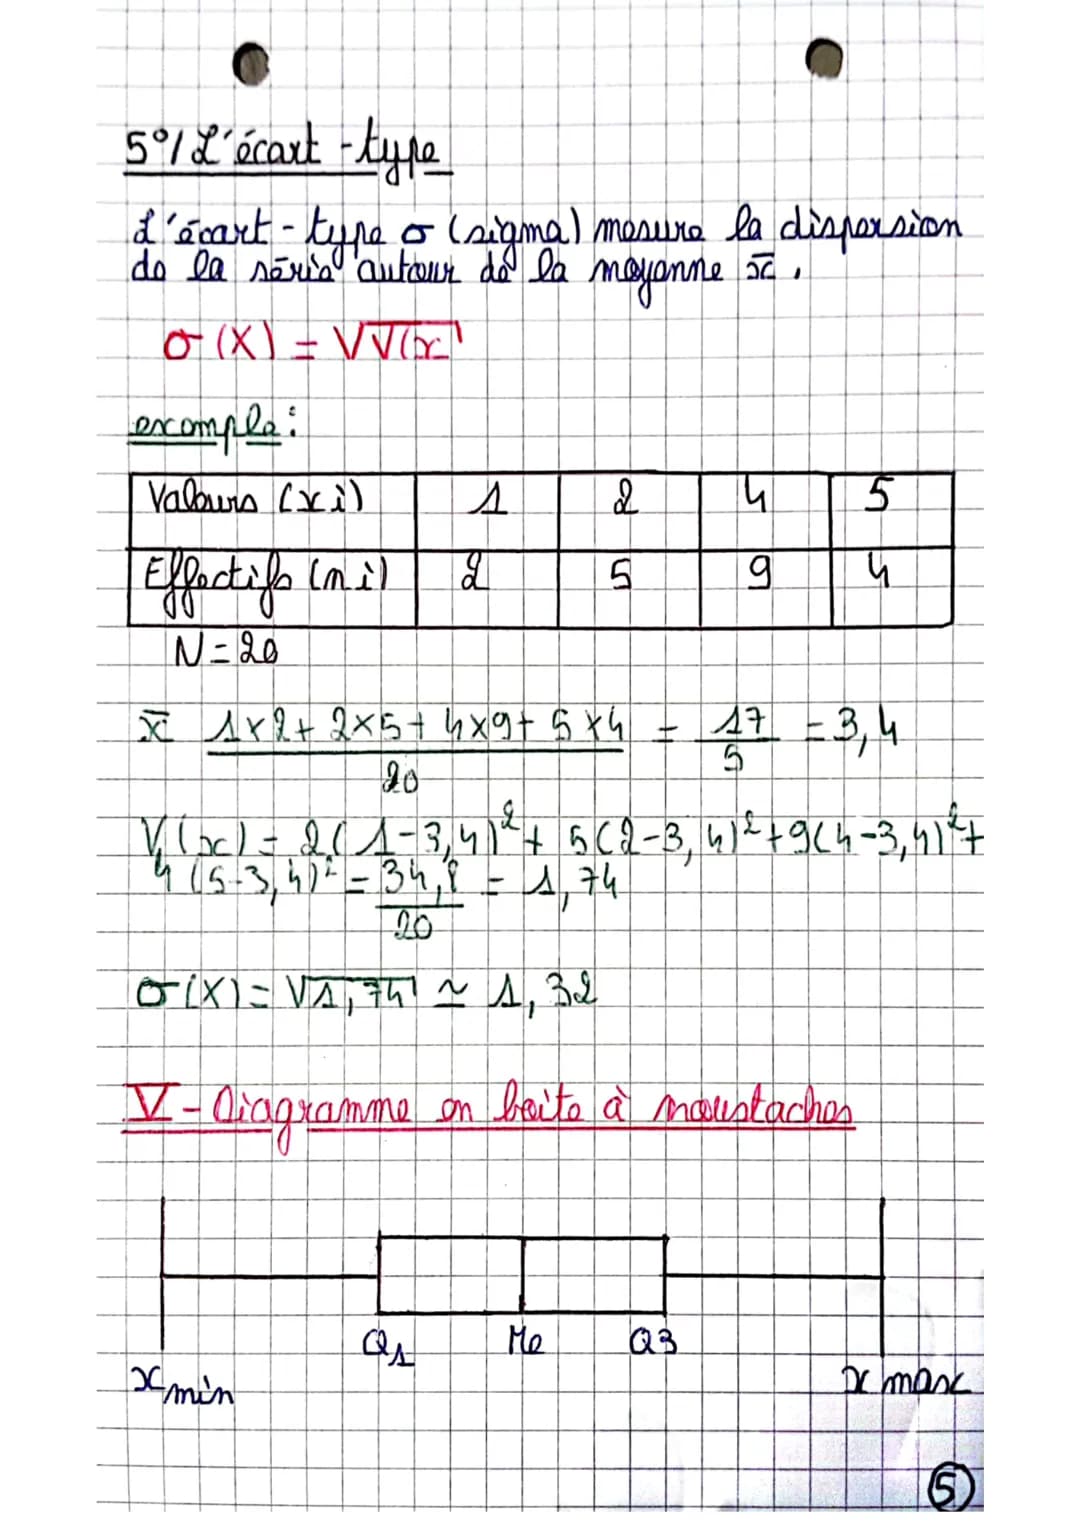 5°/ L'écart-type
L'écart-type σ (sigma) mesure la dispersion
de la série autour de la moyenne x̄.
σ(X) = √V(x)
exemple:
Valeurs (xi) 1 2 4 5
Effectifs (ni) 2 5 9 4
N = 20
x̄ 1×2 + 2×5 + 4×9 + 5×4 / 20 = 17/5 = 3,4
V(x) = 2(1-3,4)² + 5(2-3,4)² + 9(4-3,4)² +
4(5-3,4)² = 34,8/20 = 1,74
σ(X) = √1,74 ≃ 1,32
V - Diagramme en boite à moustaches
Q1 Me Q3
x min x max
5